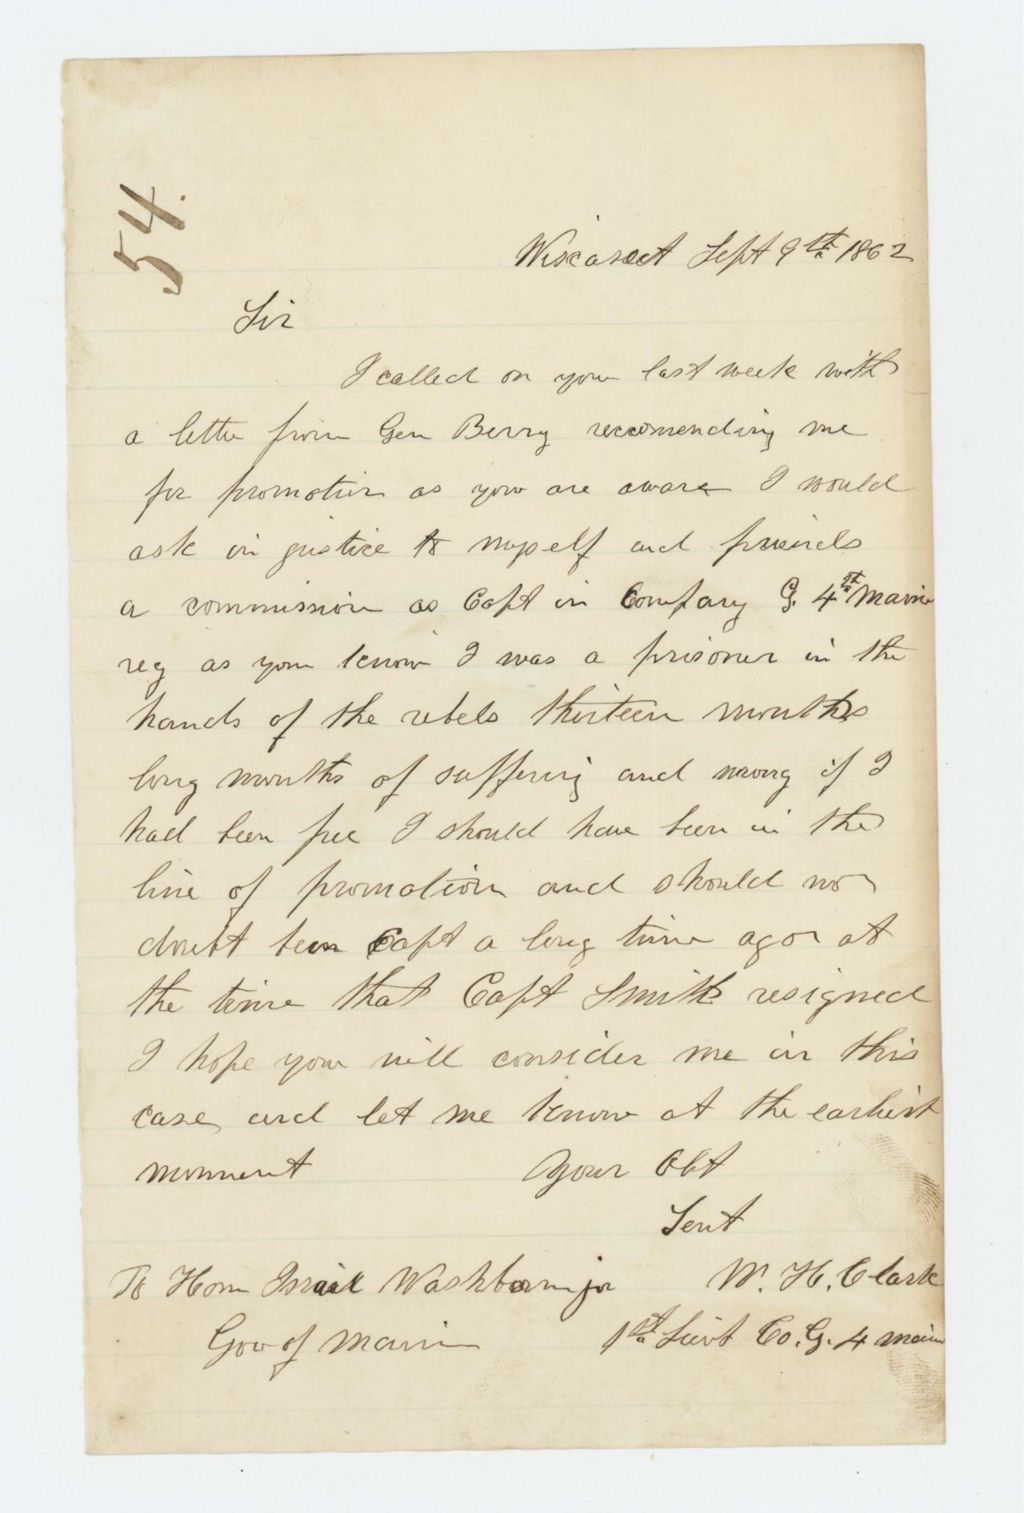 54.
Wiscasset Sept 9th 1862
Sir
I called on you last week with
a letter from Gen Berry reccomending me
for promotion as you are aware I would
ask in justice to myself and friends
a commission as Capt in Company G. 4th Maine
reg as you know I was a prisoner in the
hands of the rebels thirteen months
long months of suffering and wrong if I
had been free I should have been in the
line of promotion and should no
doubt been Capt a long time ago at
the time that Capt Smith resigned
I hope you will consider me in this
case and let me know at the earliest
moment Your Obt
Servt
To Hon Israel Washburn jr W. H. Clark
Gov of Maine 1st Lieut Co. G. 4 Maine